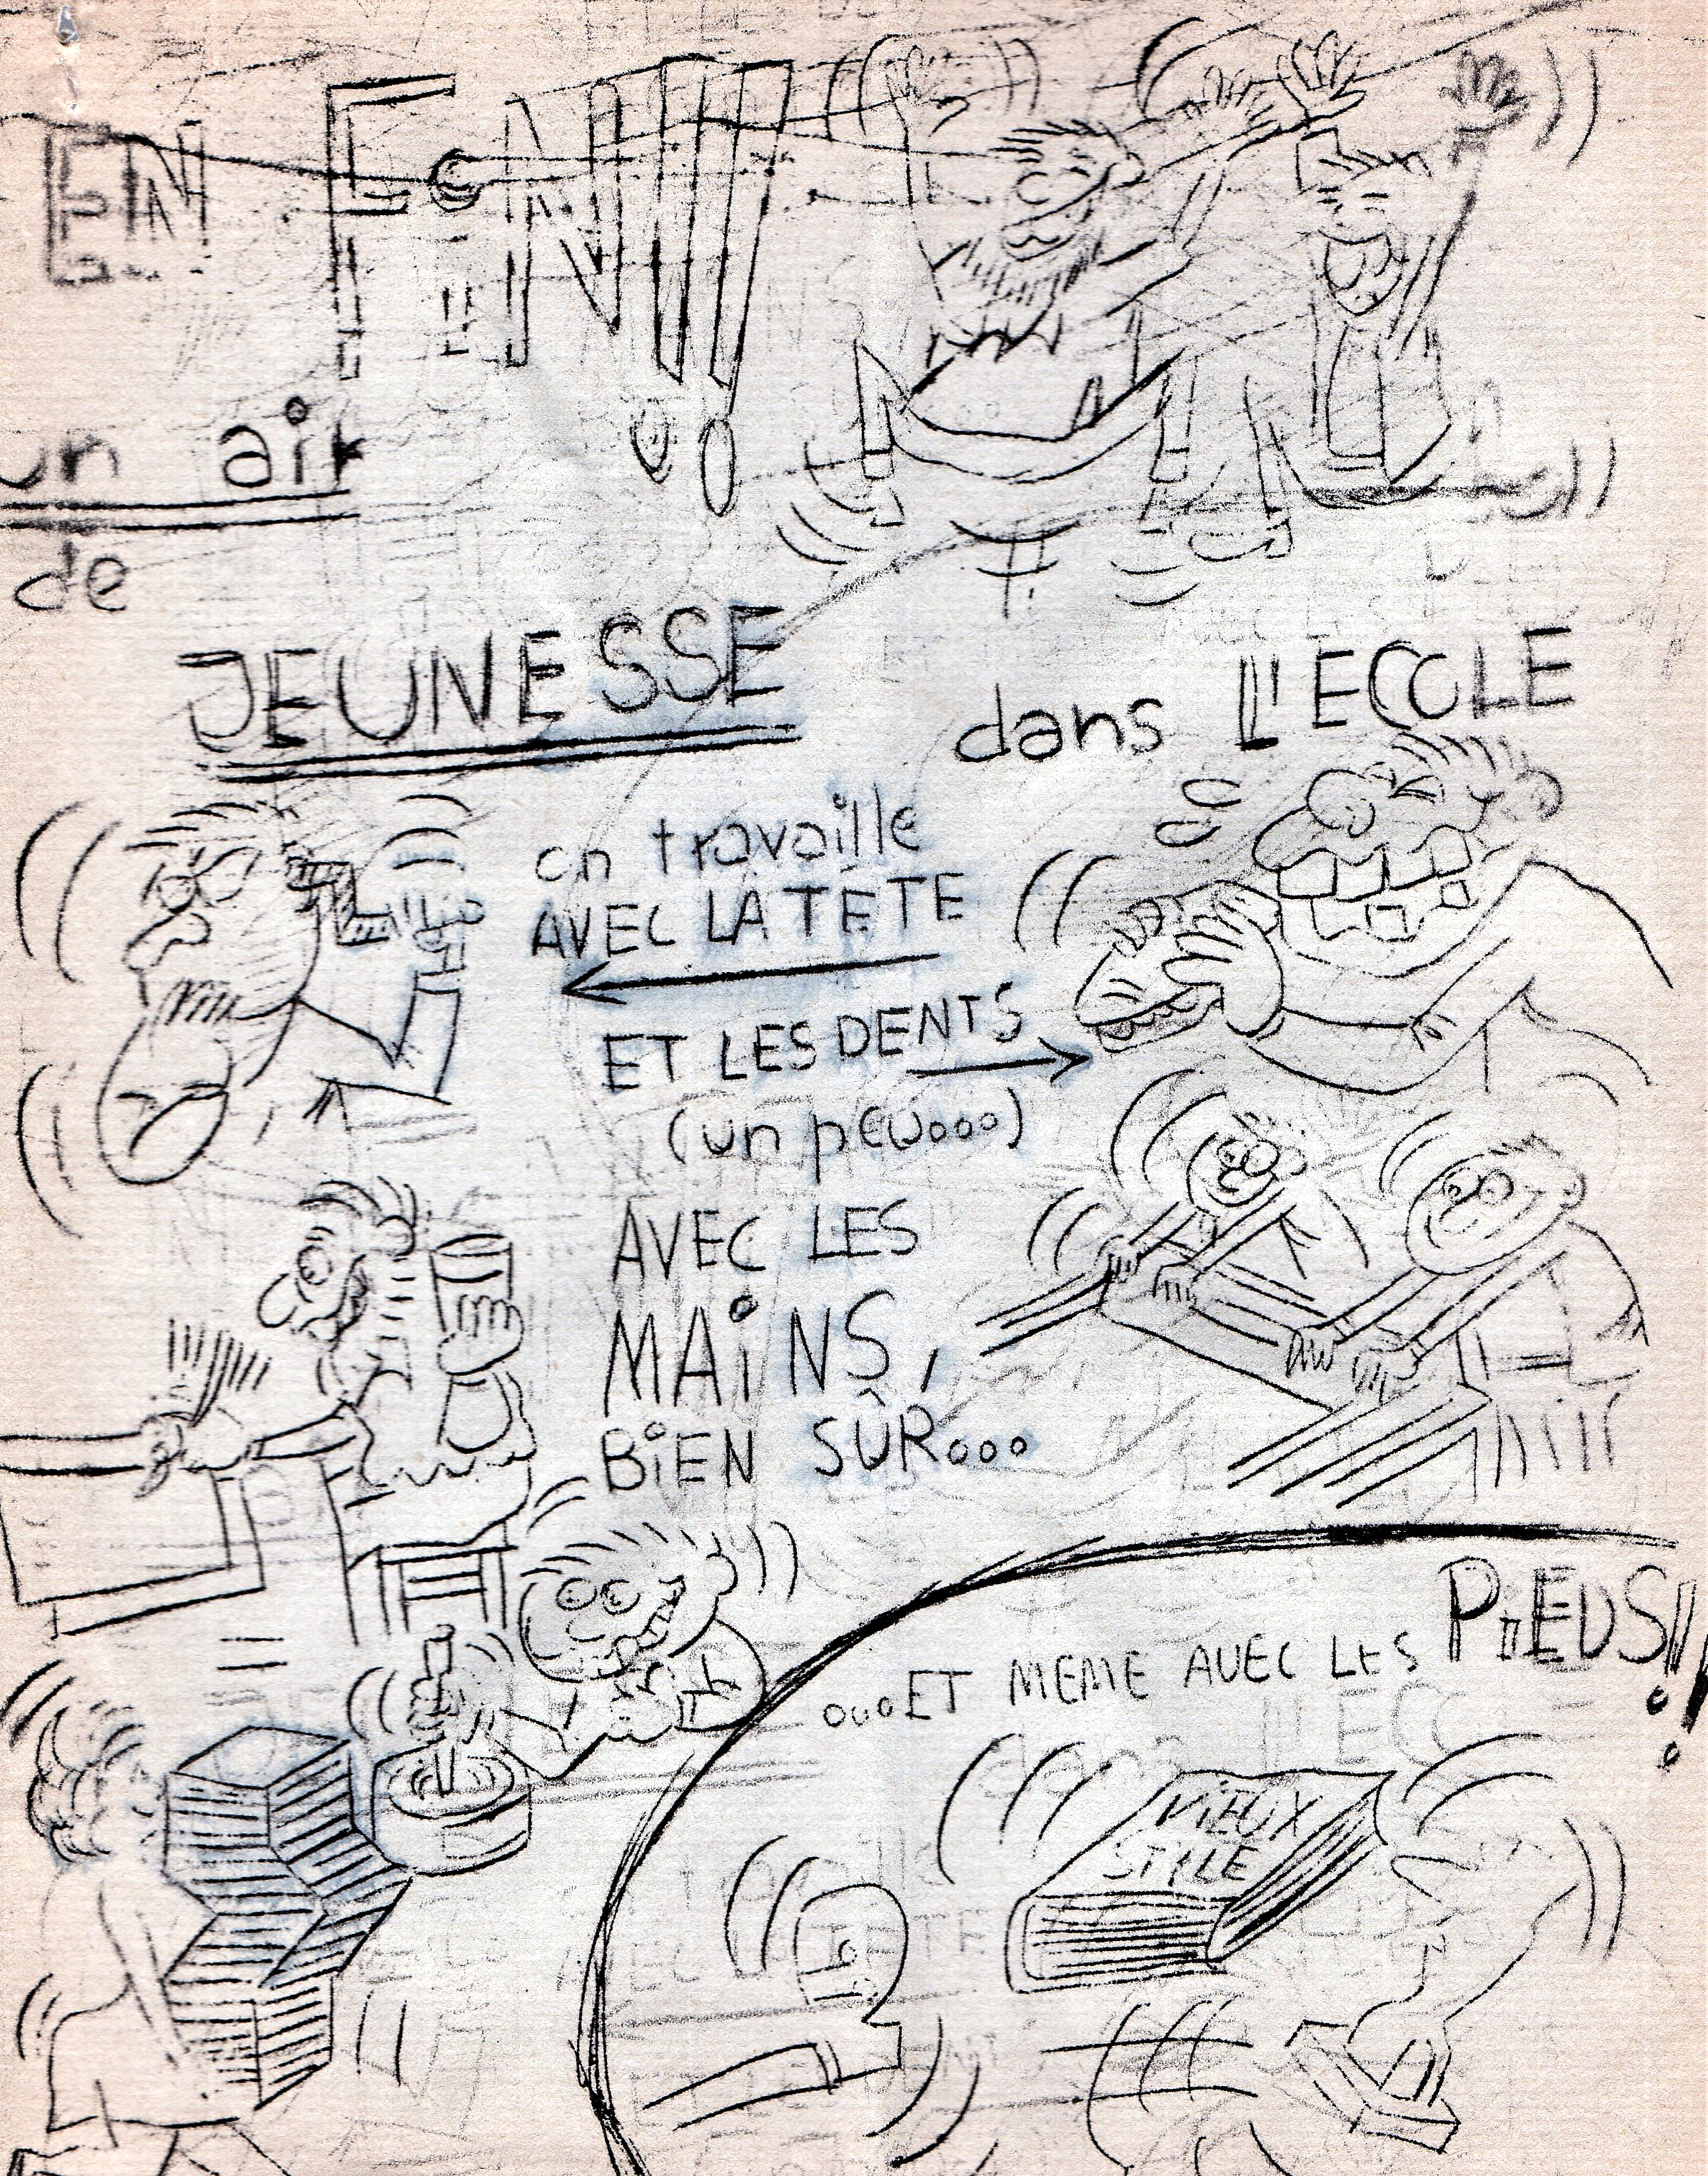 EN FIN!!
un air
de
JEUNESSE
dans L'ECOLE
on travaille
AVEC LA TÊTE
ET LES DENTS
(un peu...)
AVEC LES
MAiNS,
BiEN SÛR...
...ET MEME AVEC LES PiEDS!!
ViEUX
STYLE